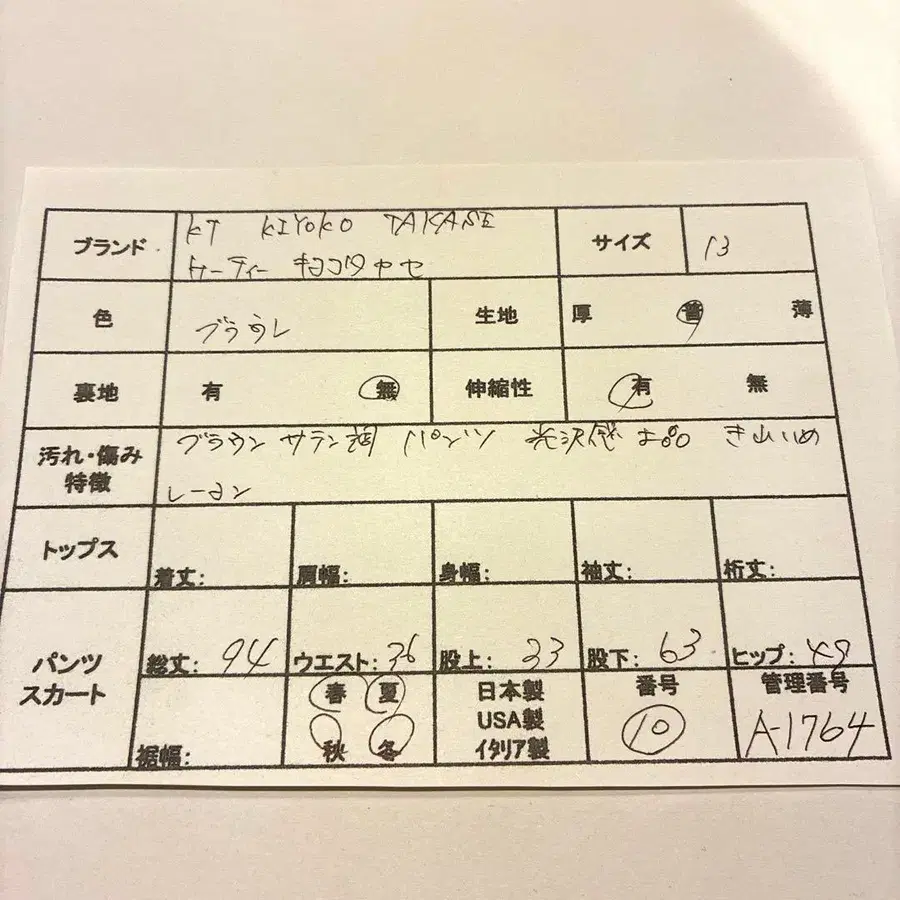 ブランド KT KIYOKO TAKASE サイズ 13
ケーティー キヨコタカセ
色 ブラウン 生地 厚 普 薄
裏地 有 無 伸縮性 有 無
汚れ・傷み ブラウン サテン調 パンツ 光沢感 上品 きれいめ
特徴 レーヨン
トップス 着丈: 肩幅: 身幅: 袖丈: 裄丈:
パンツ 総丈: 94 ウエスト: 36 股上: 33 股下: 63 ヒップ: 49
スカート 春 夏 日本製 番号 管理番号
USA製 10 A-1764
裾幅: 秋 冬 イタリア製